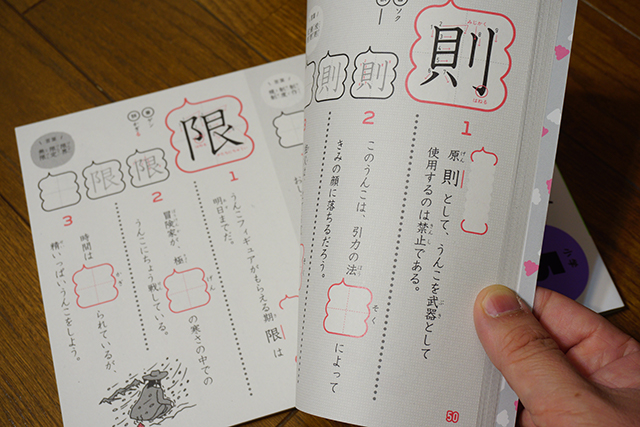 則
ソク
みじかく
はねる
則
則
1
原則として、うんこを武器として
使用するのは禁止である。
げんそく
ぶき
きんし
2
このうんこは、引力の法
そく
によって
きみの顔に落ちるだろう。
50
限
ゲン
かぎる
限
限
1
うんこフィギュアがもらえる期限は
明日までだ。
2
冒険家が、極
げん
の寒さの中での
うんこにちょう戦している。
3
時間は
かぎ
られているが、
精いっぱいうんこをしよう。